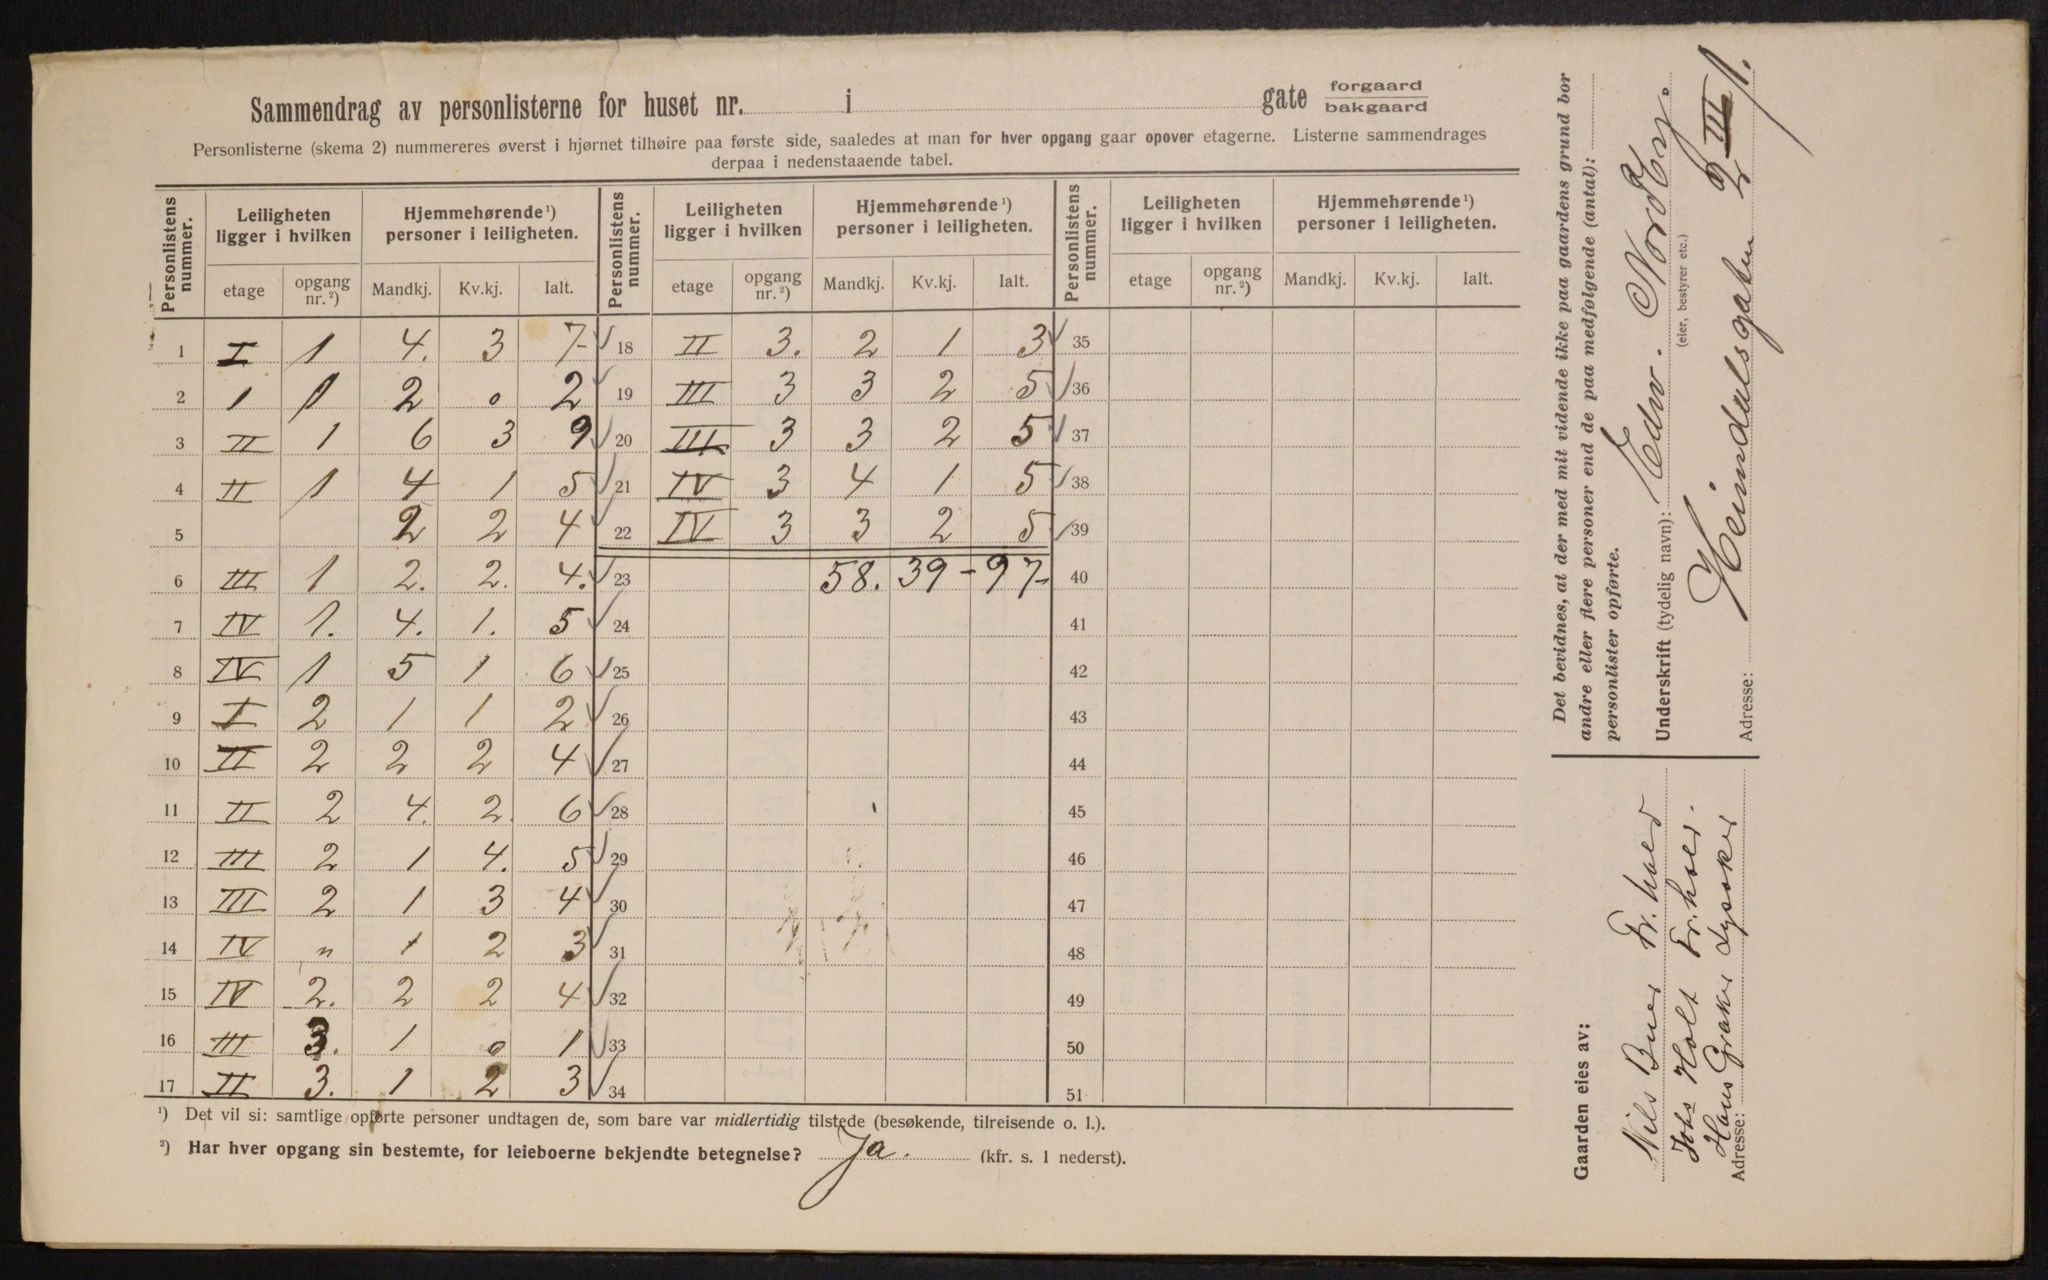 Sammendrag av personlisterne for huset nr. i gate forgaard
bakgaard
Personlisterne (skema 2) nummereres øverst i hjørnet tilhøire paa første side, saaledes at man for hver opgang gaar opover etagerne. Listerne sammendrages
derpaa i nedenstaaende tabel.
Personlistens nummer. Leiligheten ligger i hvilken Hjemmehørende¹) personer i leiligheten. Personlistens nummer. Leiligheten ligger i hvilken Hjemmehørende¹) personer i leiligheten. Personlistens nummer. Leiligheten ligger i hvilken Hjemmehørende¹) personer i leiligheten.
etage opgang nr.²) Mandkj. Kv.kj. Ialt. etage opgang nr.²) Mandkj. Kv.kj. Ialt. etage opgang nr.²) Mandkj. Kv.kj. Ialt.
1 I 1 4. 3 7- 18 II 3. 2 1 3 35
2 1 1 2 0 2 19 III 3 3 2 5 36
3 II 1 6 3 9 20 III 3 3 2 5 37
4 II 1 4 1 5 21 IV 3 4 1 5 38
5 2 2 4 22 IV 3 3 2 5 39
6 III 1 2. 2. 4. 23 58. 39 - 97- 40
7 IV 1. 4. 1. 5 24 41
8 IV 1 5 1 6 25 42
9 I 2 1 1 2 26 43
10 II 2 2 2 4 27 44
11 II 2 4. 2. 6 28 45
12 III 2 1 4. 5 29 46
13 III 2 1 3 4 30 47
14 IV " 1 2 3 31 48
15 IV 2. 2 2 4 32 49
16 III 3. 1 0 1 33 50
17 II 3. 1 2 3 34 51
¹) Det vil si: samtlige opførte personer undtagen de, som bare var midlertidig tilstede (besøkende, tilreisende o. l.).
²) Har hver opgang sin bestemte, for leieboerne bekjendte betegnelse? Ja. (kfr. s. 1 nederst).
Det bevidnes, at der med mit vidende ikke paa gaardens grund bor
andre eller flere personer end de paa medfølgende (antal):
personlister opførte.
Underskrift (tydelig navn): Edw. Nordby.
(eier, bestyrer etc.)
Adresse: Heimdalsgaten
Gaarden eies av:
Nils Buer Fr. hald
Johs Holt Fr. hald.
Hans Graker Lysaker
Adresse: